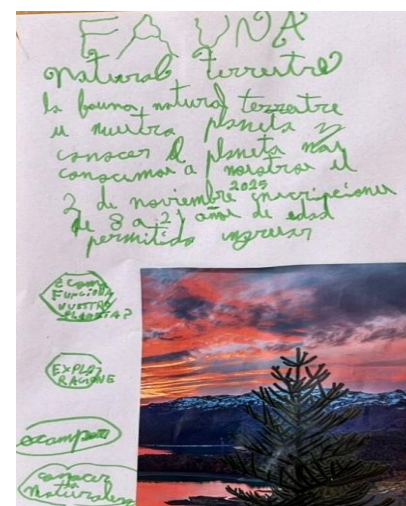 FAUNA
natural terrestre
la fauna natural terrestre
u nuestro planeta y
conocer el planeta nos
conocemos a nosotros el
2 de noviembre 2025 inscripciones
de 8 a 21 años de edad
permitido ingresar
¿COMO
FUNCIONA
NUESTRO
PLANETA?
EXPLO
RACIONE
acampar
conocer
la
naturaleza